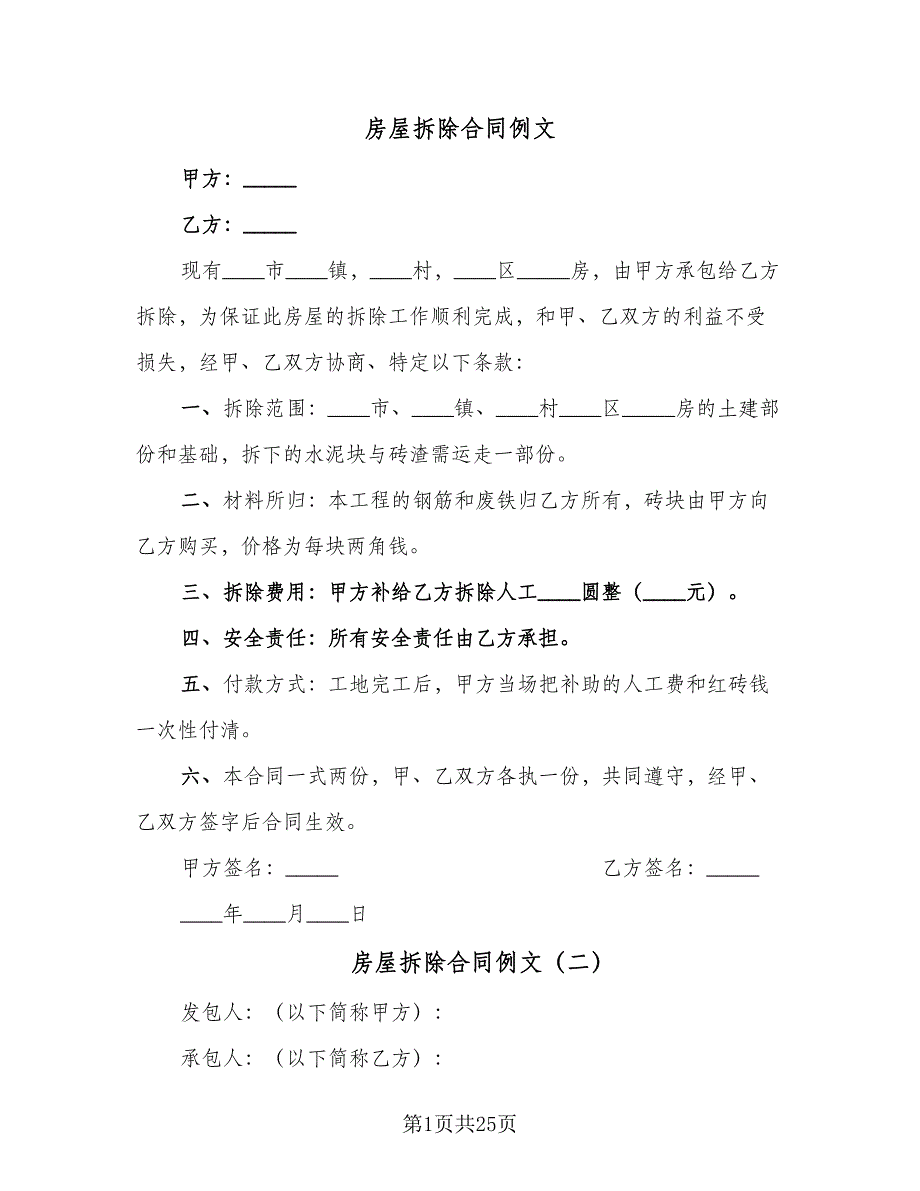 房屋拆除合同例文
甲方：_____
乙方：_____
现有____市____镇，____村，____区_____房，由甲方承包给乙方
拆除，为保证此房屋的拆除工作顺利完成，和甲、乙双方的利益不受
损失，经甲、乙双方协商、特定以下条款：
一、拆除范围：____市、____镇、____村____区_____房的土建部
份和基础，拆下的水泥块与砖渣需运走一部份。
二、材料所归：本工程的钢筋和废铁归乙方所有，砖块由甲方向
乙方购买，价格为每块两角钱。
三、拆除费用：甲方补给乙方拆除人工____圆整（____元）。
四、安全责任：所有安全责任由乙方承担。
五、付款方式：工地完工后，甲方当场把补助的人工费和红砖钱
一次性付清。
六、本合同一式两份，甲、乙双方各执一份，共同遵守，经甲、
乙双方签字后合同生效。
甲方签名：_____ 乙方签名：_____
____年____月____日
房屋拆除合同例文（二）
发包人：（以下简称甲方）：
承包人：（以下简称乙方）：
第1页共25页